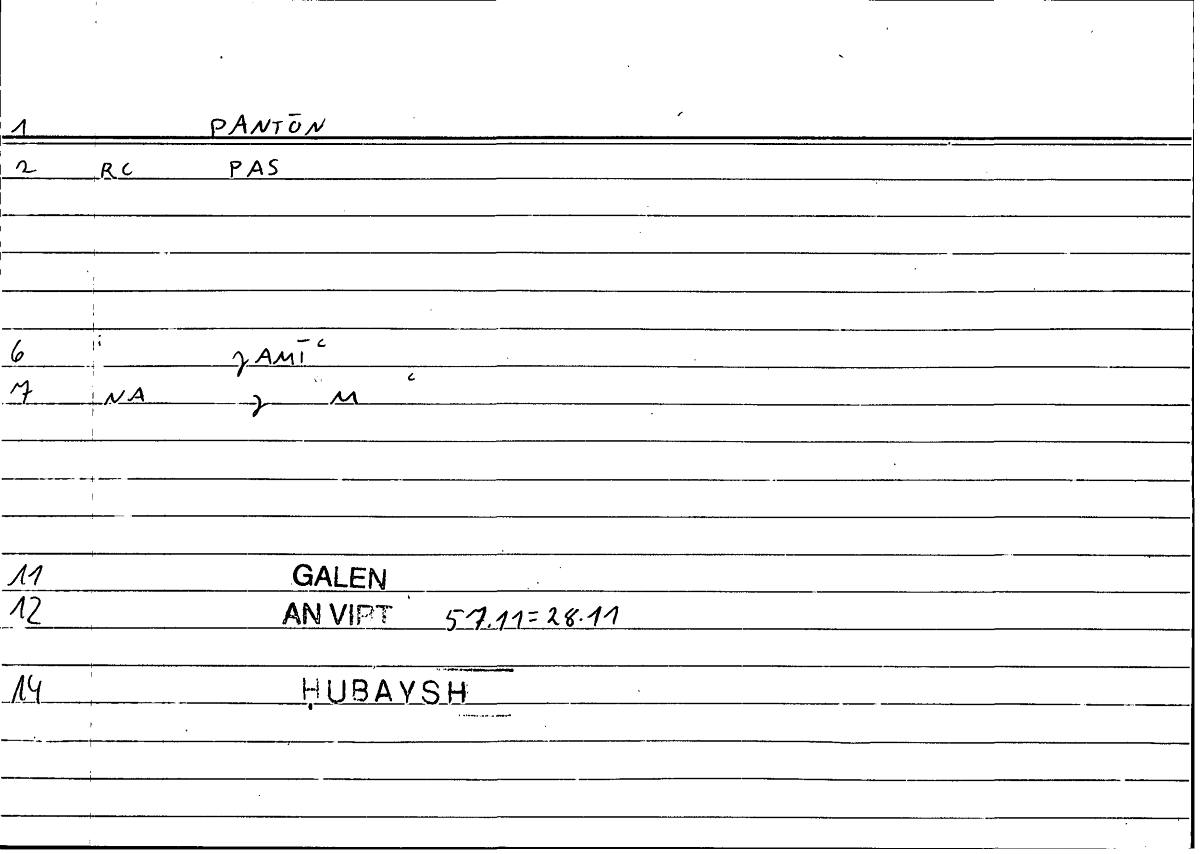 1 PANTŌN
2 RC PAS
6 ʒAMĪʿ
7 NA ʒ M ʿ
11 GALEN
12 AN VIRT 57.11=28.11
14 ḤUBAYSH